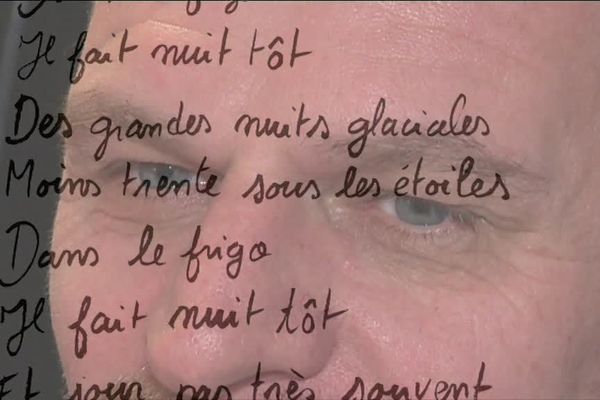 Il fait nuit tôt
Des grandes nuits glaciales
Moins trente sous les étoiles
Dans le frigo
Il fait nuit tôt
Et jour pas très souvent